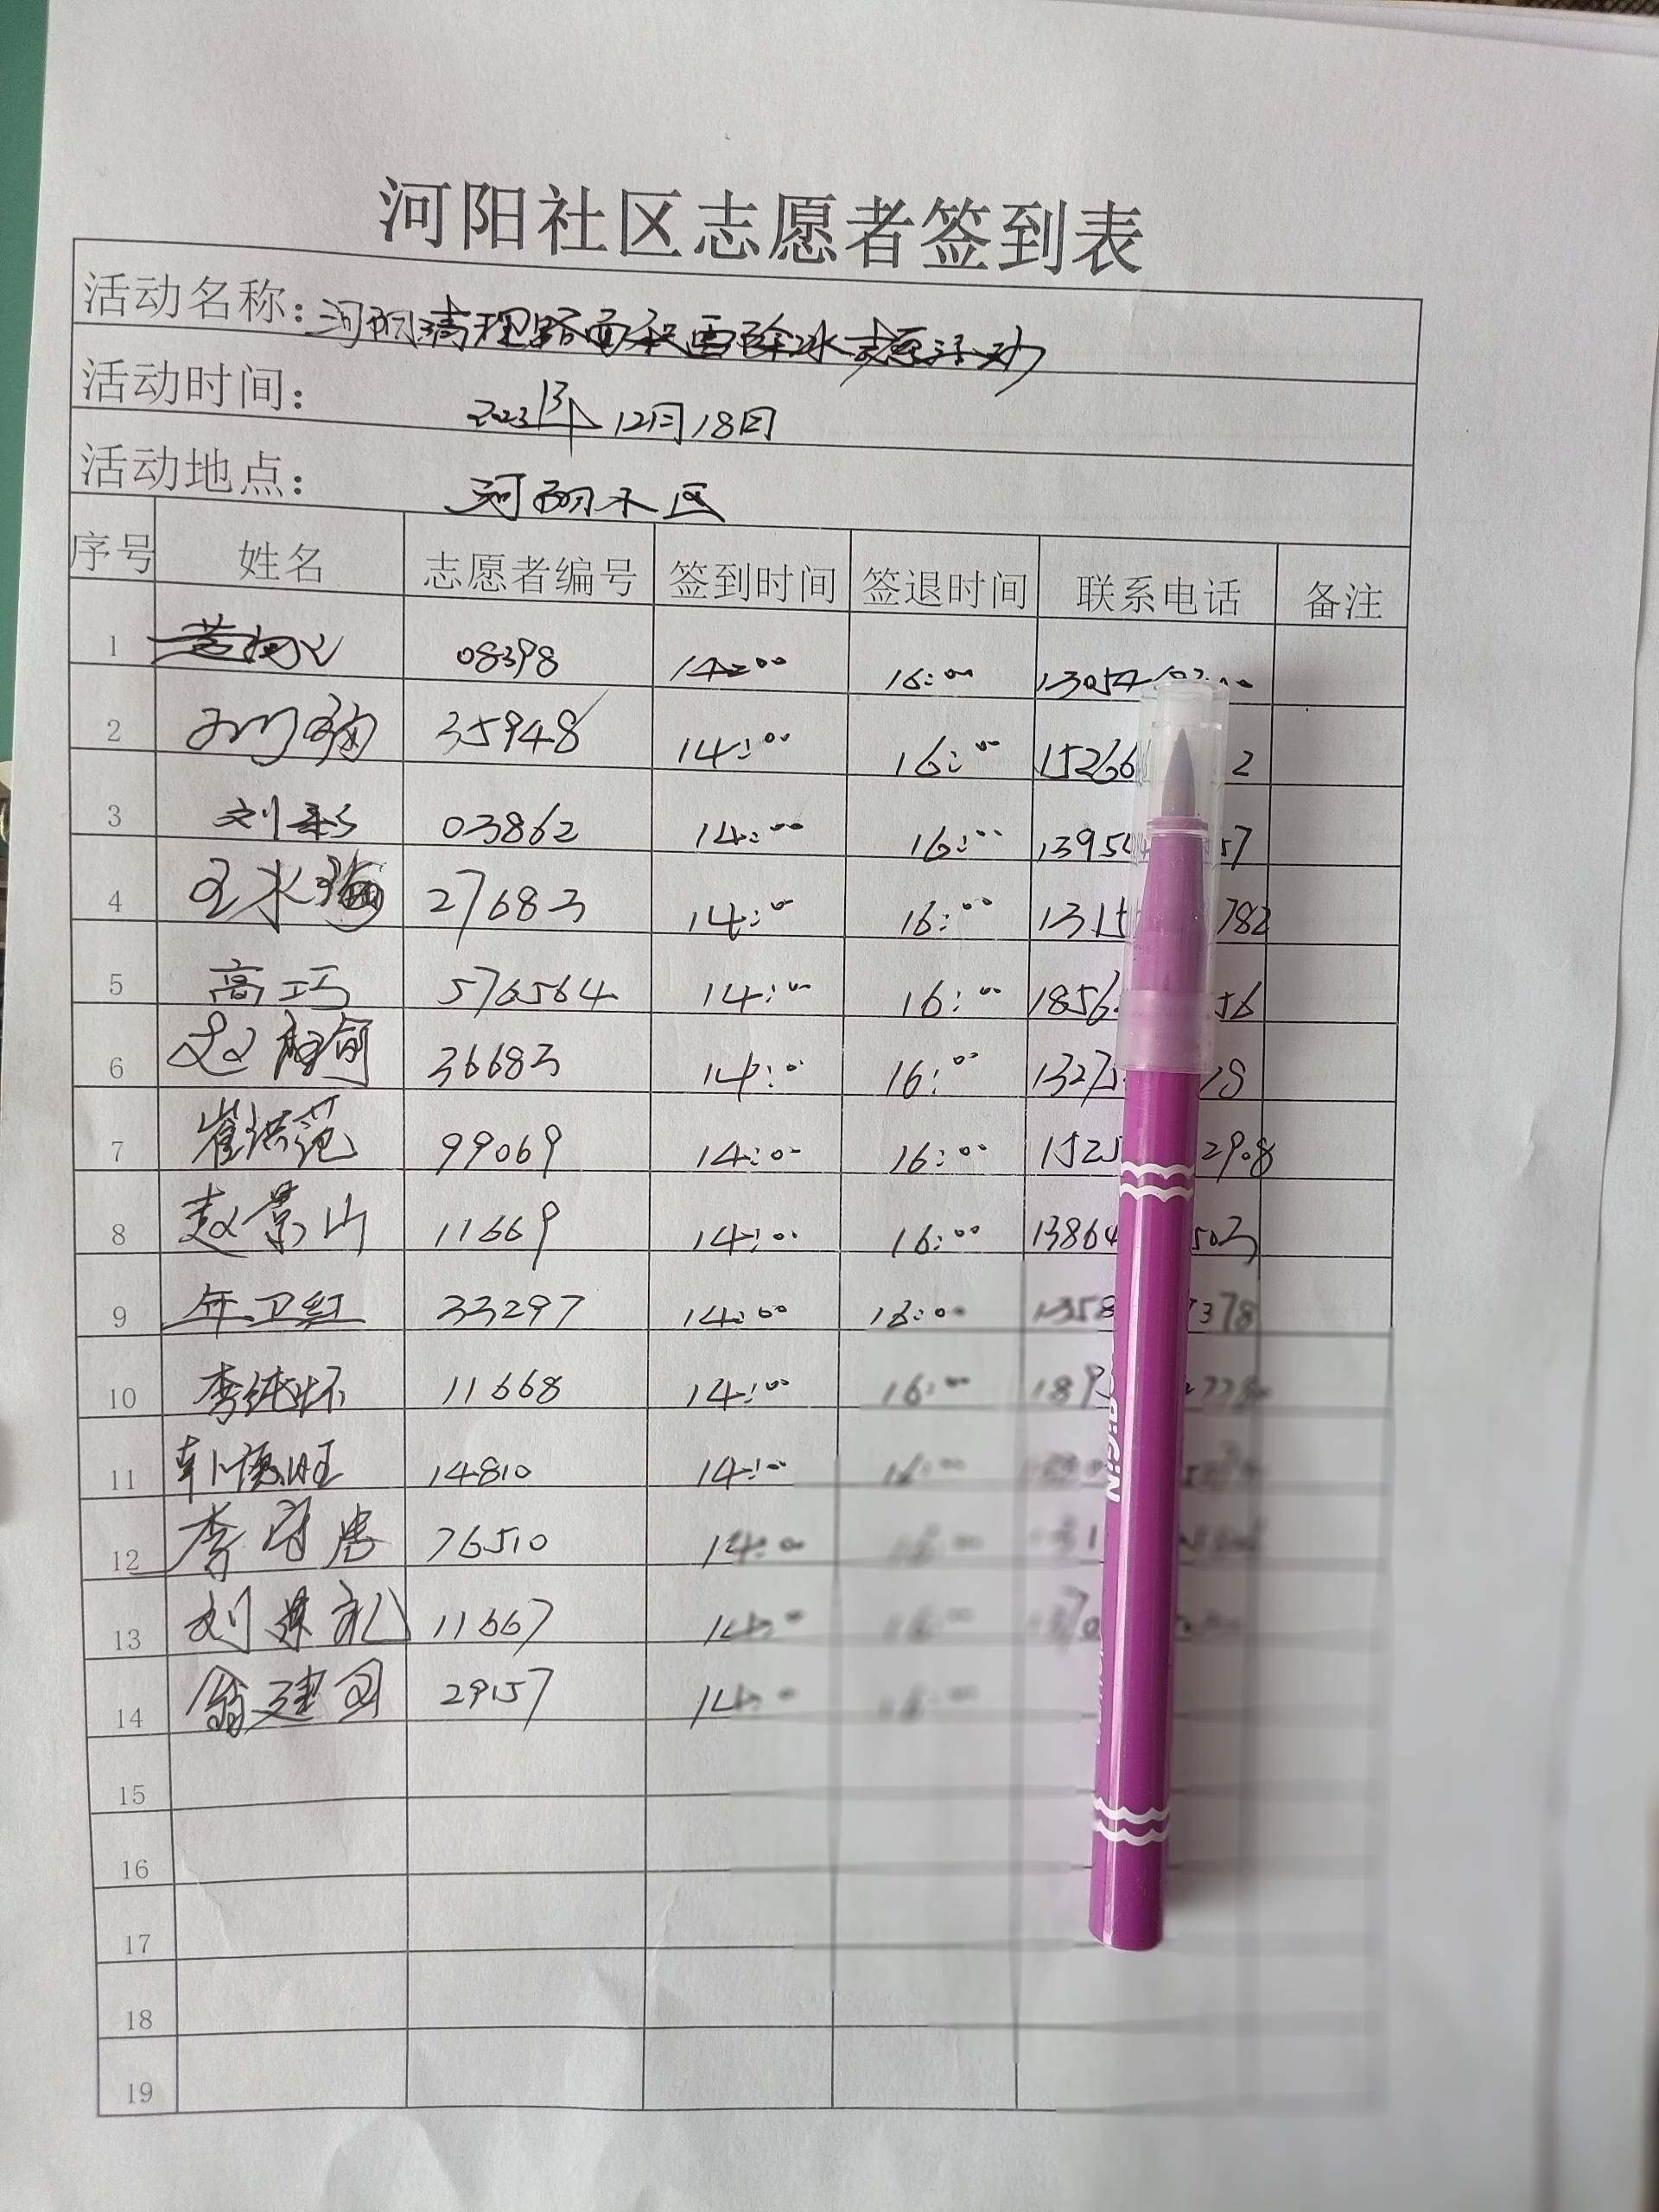 河阳社区志愿者签到表
活动名称：河阳清理路面积雪除冰志愿活动
活动时间： 2023年12月18日
活动地点： 河阳小区
序号 姓名 志愿者编号 签到时间 签退时间 联系电话 备注
1 08398 14:00 16:00 13054
2 35948 14:00 16:00 15266 2
3 刘彩 03862 14:00 16:00 1395 57
4 王永海 27683 14:00 16:00 1315 782
5 高巧 576564 14:00 16:00 1856 56
6 赵 36683 14:00 16:00 1327 18
7 崔洪范 99069 14:00 16:00 1525 2908
8 赵景山 11669 14:00 16:00 13864 503
9 年卫红 33297 14:00 16:00 1358 378
10 李纯怀 11668 14:00 16:00 189
11 14810 14:00 16:00
12 李守忠 76510 14:00
13 刘 礼 11667 14:00
14 翁建国 29157 14:00
15
16
17
18
19